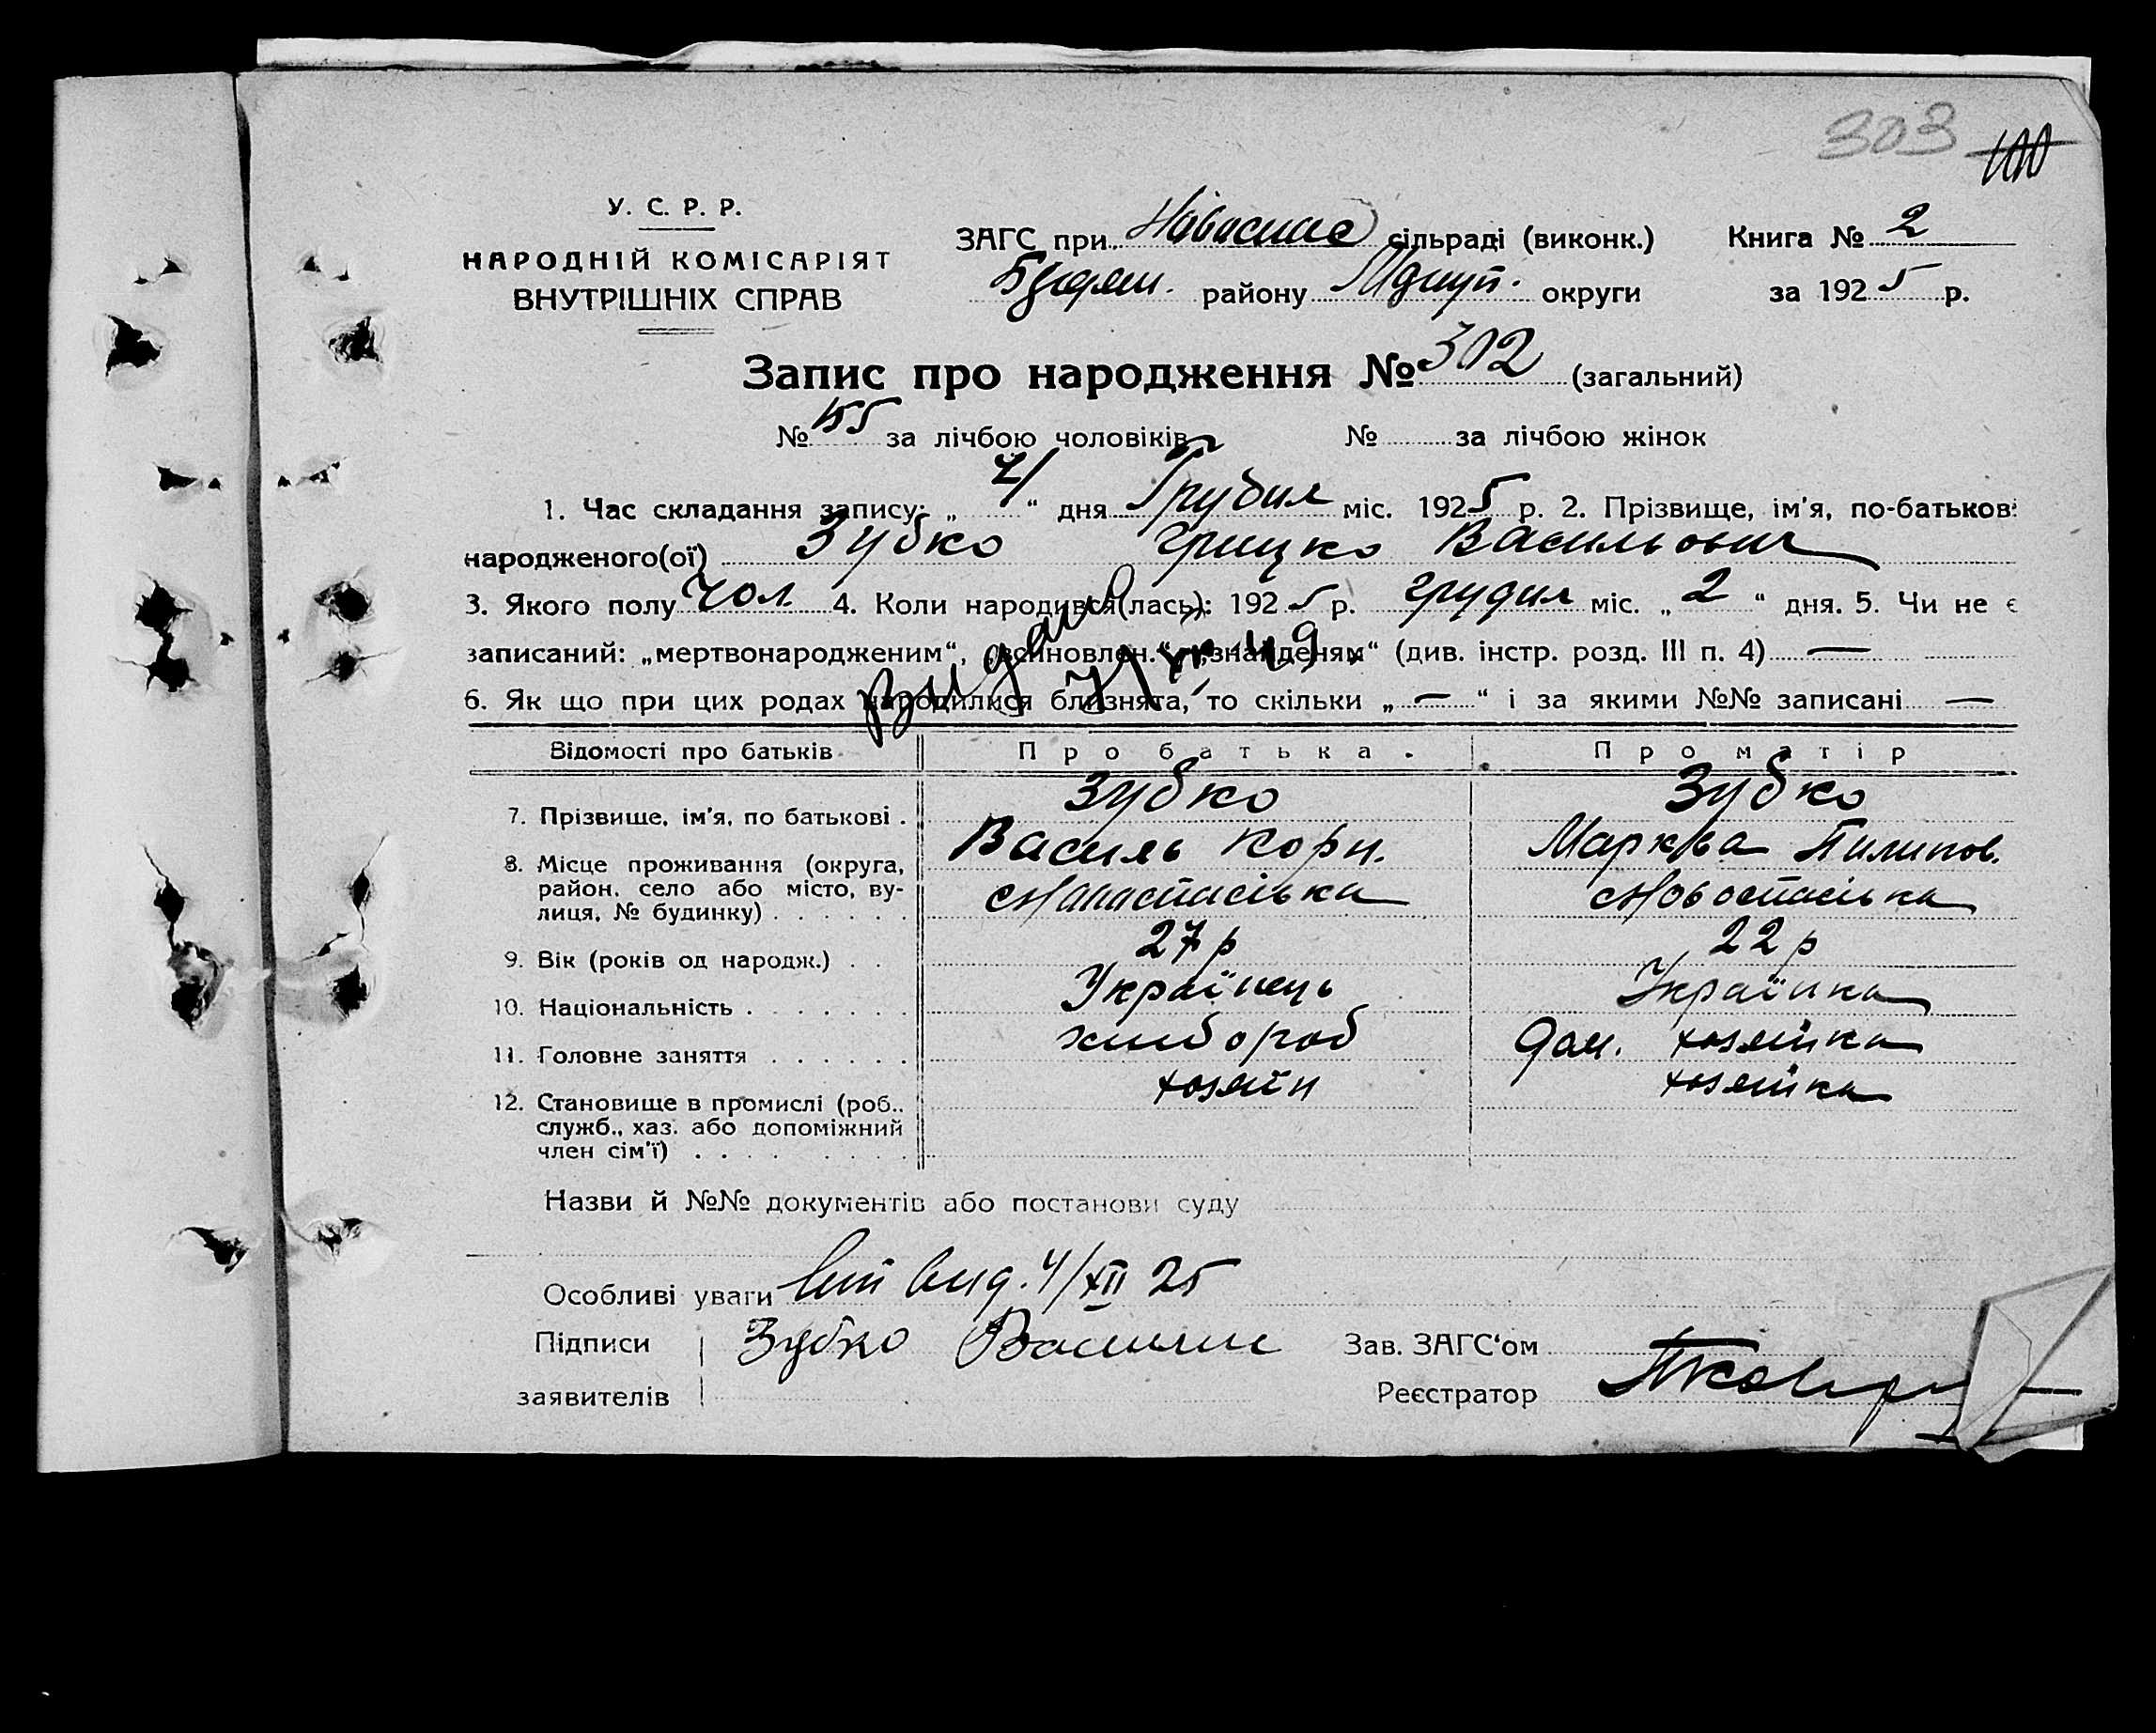 303 100
У. С. Р. Р.
НАРОДНІЙ КОМІСАРІЯТ
ВНУТРІШНІХ СПРАВ
ЗАГС при сільраді (виконк.) Книга № 2
району округи за 1925 р.
Запис про народження № 302 (загальний)
№ 155 за лічбою чоловіків № за лічбою жінок
1. Час складання запису: „ 4/ “ дня Грудня міс. 1925 р. 2. Прізвище, ім'я, по-батькові
народженого(ої) Зубко Грицко Васильович
3. Якого полу чол 4. Коли народився(лась): 1925 р. грудня міс. „ 2 “ дня. 5. Чи не є
записаний: „мертвонародженим“, „всиновлен.“, „знайденям“ (див. інстр. розд. III п. 4) —
6. Як що при цих родах народилися близнята, то скільки „ — “ і за якими №№ записані —
Видано
Відомості про батьків Про батька. Про матір
7. Прізвище, ім'я, по батькові . Зубко Зубко
Василь Корн. Пилипов.
8. Місце проживання (округа,
район, село або місто, ву-
лиця, № будинку) . . . . . .
9. Вік (років од народж.) . . 27 р 22 р
10. Національність . . . . . . . Українець Українка
11. Головне заняття . . . . . . хлибороб Дом. хозяйка
12. Становище в промислі (роб., хозяїн хозяйка
служб., хаз. або допоміжний
член сім'ї) . . . . . . . .
Назви й №№ документів або постанови суду
Особливі уваги вид. 4/XII 25
Підписи Зубко Зав. ЗАГС'ом
заявителів Реєстратор